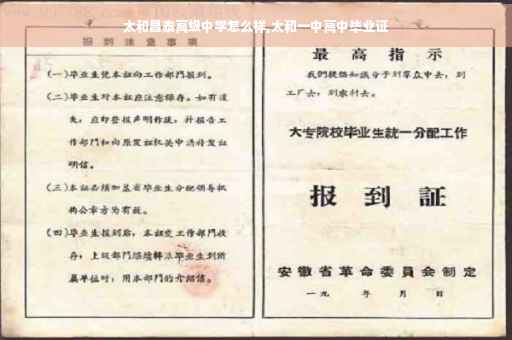 太和昌泰高级中学怎么样,太和一中高中毕业证
报到注意事项
(一)毕业生凭本证向工作部门报到。
(二)毕业生对本证应注意保存。如有遗
失，应即登报声明作废，并报告工
作部门和向原发证机关申请补发证
明信。
(三)本证必须加盖省毕业生分配领导机
构公章方为有效。
(四)毕业生报到后，本证交工作部门收
存；上级部门继续转派毕业生到所
属单位时，用本部门的介绍信。
最高指示
我们提倡知识分子到群众中去，到
工厂去，到农村去。
大专院校毕业生統一分配工作
报到証
安徽省革命委員会制定
一九 年 月 日